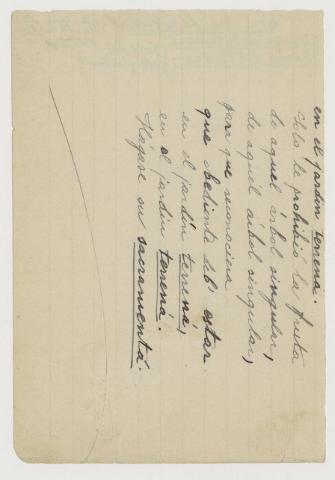 en el jardín terrena.
Solo le prohibió la fruta
de aquel árbol singular,
de aquél árbol singular,
para que reconociera
que obediente deb' estar
en el jardín terrená,
en el jardín terrená.
Hágase su sacramentá.